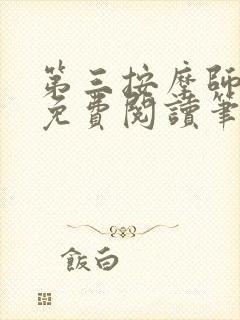 第三按摩師
免費閱讀筆
飯白